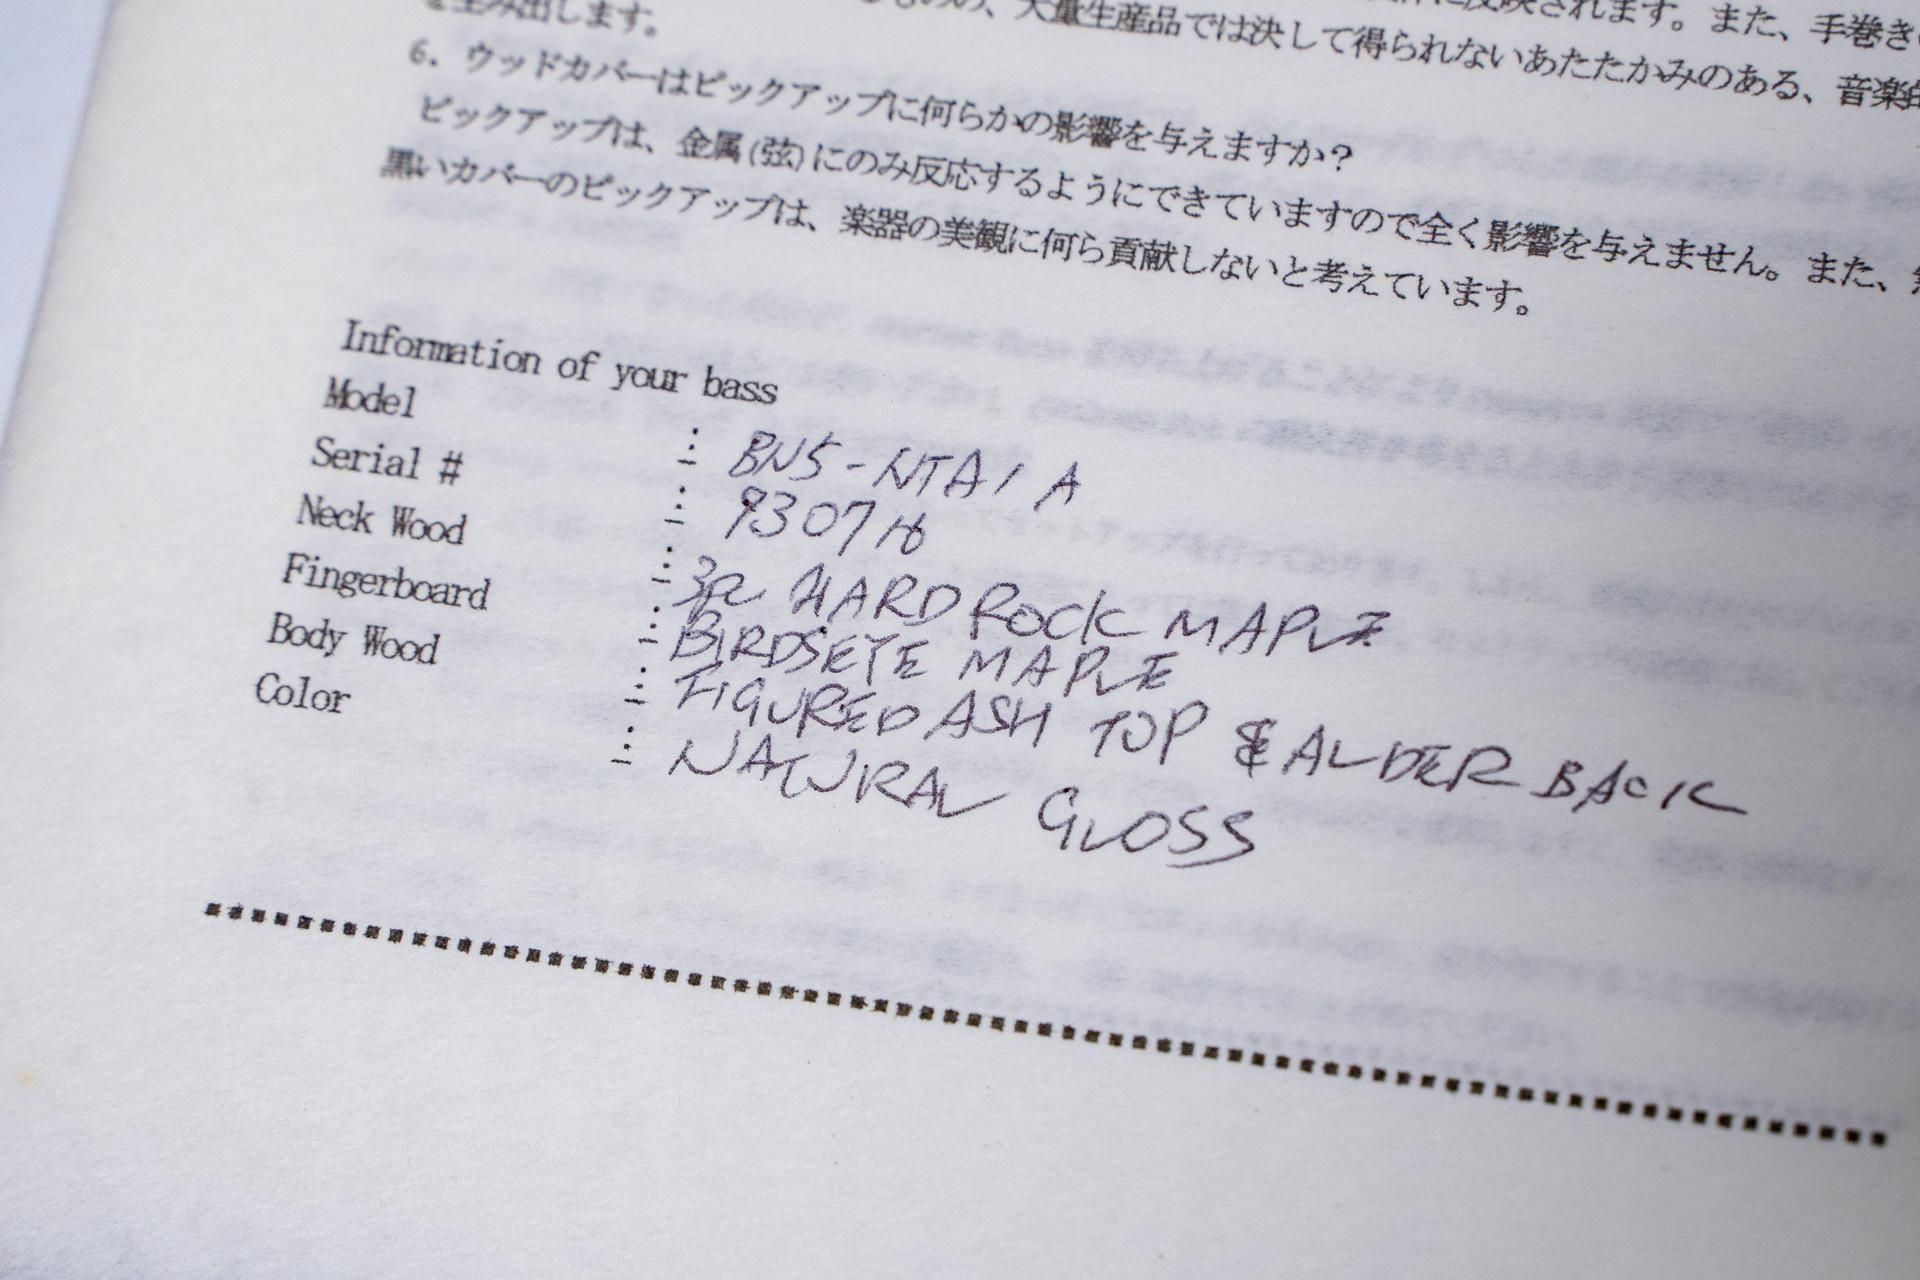 を生み出します。
の、大量生産品では決して得られないあたたかみのある、音楽的
反映されます。また、手巻き
6. ウッドカバーはピックアップに何らかの影響を与えますか？
ピックアップは、金属(弦)にのみ反応するようにできていますので全く影響を与えません。また、
黒いカバーのピックアップは、楽器の美観に何ら貢献しないと考えています。
Information of your bass
Model : BN5-NTA1 A
Serial # : 9307
Neck Wood : HARD ROCK MAPLE
Fingerboard : BIRDSEYE MAPLE
Body Wood : FIGURED ASH TOP & ALDER BACK
Color : NATURAL GLOSS